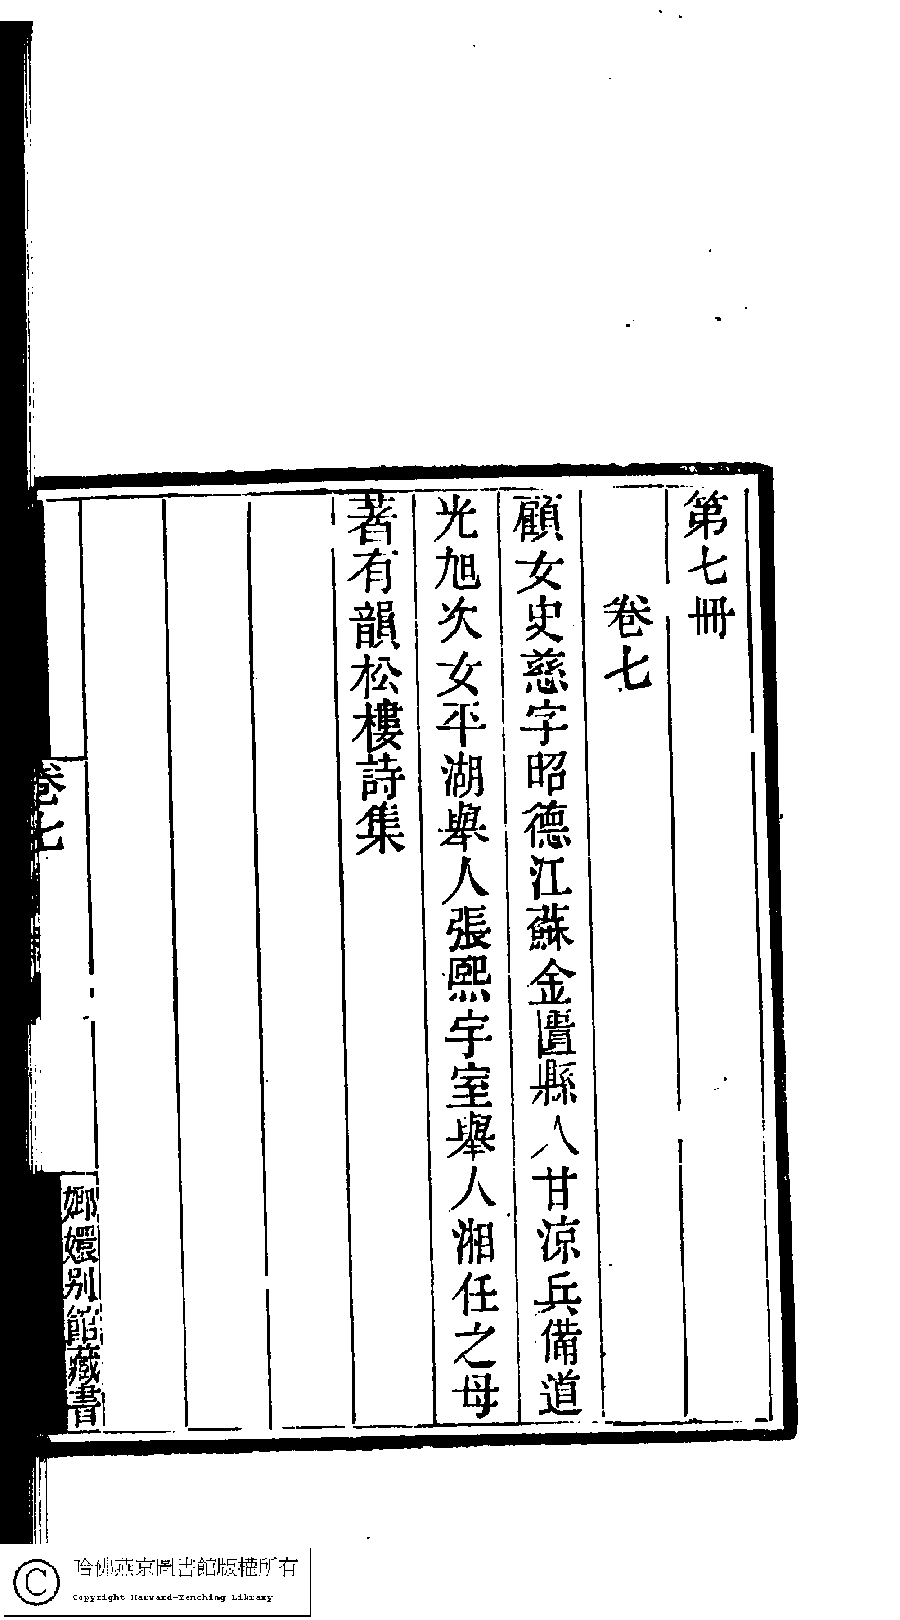 第七冊
卷七
顧女史慈字昭德江蘇金匱縣人甘涼兵備道
光旭次女平湖舉人張熙宇室舉人湘任之母
著有韻松樓詩集
卷七
嫏嬛別館藏書
哈佛燕京圖書館版權所有
Copyright Harvard-Yenching Library